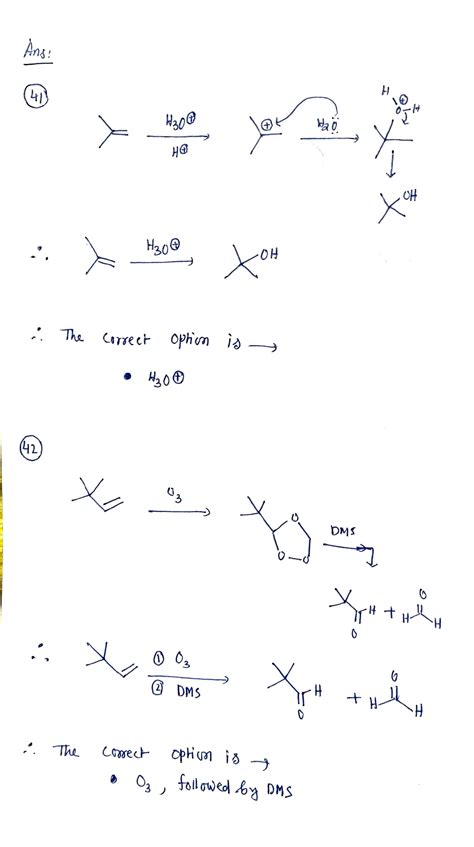 Ans:
41
H3O⊕
H⊕
⊕
H2Ö
H
⊕
O-H
OH
∴ H3O⊕ OH
∴ The correct option is →
• H3O⊕
42
O3
O
O-O
DMS
H + H H
O O
∴ ① O3
② DMS
H + H H
O O
∴ The correct option is →
• O3, followed by DMS